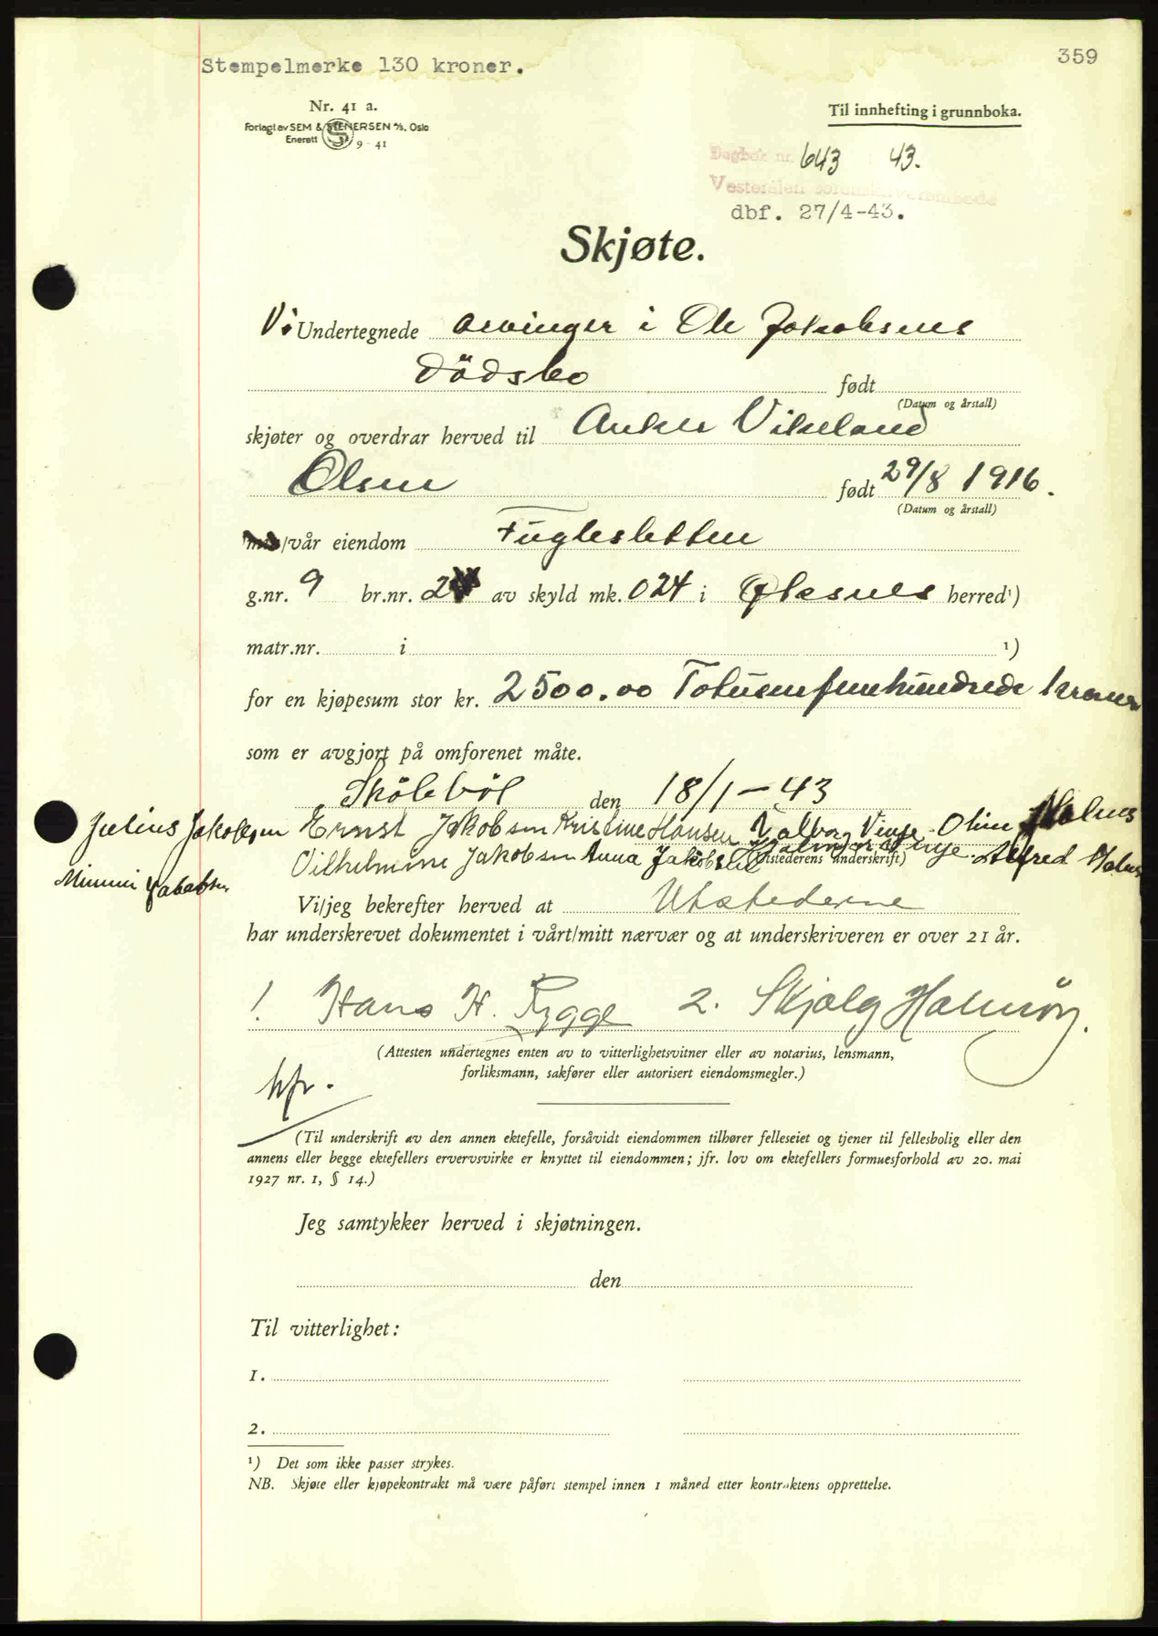 359
Stempelmerke 130 kroner.
Nr. 41 a.
Forlagt av SEM & STENERSEN A/S, Oslo
Enerett 9 - 41
Til innhefting i grunnboka.
Dagbok nr. 643 43.
Vesterålen sorenskriverembede
dbf. 27/4-43.
Skjøte.
Vi Undertegnede arvinger i Ole Jakobsens
dödsbo født
(Datum og årstall)
skjøter og overdrar herved til Anker Vikeland
Olsen født 29/8 1916.
(Datum og årstall)
min/vår eiendom Fuglesletten
g.nr. 9 br.nr. 2 av skyld mk. 024 i Øksnes herred¹)
matr.nr. i ¹)
for en kjøpesum stor kr. 2500.00 Totusenfemhundrede kroner
som er avgjort på omforenet måte.
den 18/1-43
Julius Jakobsen Ernst Jakobsen Kristine Hansen Valborg Vinje Oline Holmes
Vilhelmine Jakobsen Anna Jakobsen Hjalmar Vinje Alfred
(Utstederens underskrift)
Minni Jakobsen
Vi/jeg bekrefter herved at Utstederne
har underskrevet dokumentet i vårt/mitt nærvær og at underskriveren er over 21 år.
1. Hans H. Rygge 2. Skjalg Halmøy.
(Attesten undertegnes enten av to vitterlighetsvitner eller av notarius, lensmann,
forliksmann, sakfører eller autorisert eiendomsmegler.)
(Til underskrift av den annen ektefelle, forsåvidt eiendommen tilhører felleseiet og tjener til fellesbolig eller den
annens eller begge ektefellers ervervsvirke er knyttet til eiendommen; jfr. lov om ektefellers formuesforhold av 20. mai
1927 nr. 1, § 14.)
Jeg samtykker herved i skjøtningen.
den
Til vitterlighet:
1.
2.
¹) Det som ikke passer strykes.
NB. Skjøte eller kjøpekontrakt må være påført stempel innen 1 måned etter kontraktens opprettelse.